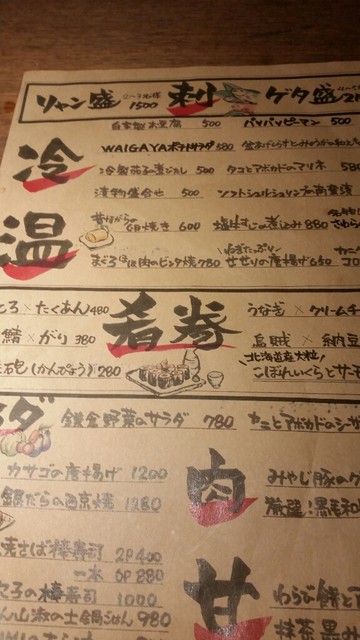 リャン盛 1500 刺 ゲタ盛
自家製お豆腐 500 パリパリピーマン 500
冷 WAIGAYAポテトサラダ 580
冷製茄子の煮びたし 500 タコとアボカドのマリネ 580
漬物盛合せ 500 ソフトシェルシュリンプの南蛮漬
温 昔ながらの卵焼き 600 塩牛すじの煮込み 880
まぐろほほ肉のピンチョ焼 780 ねぎたっぷりせせりの唐揚げ 650
とろ×たくあん 480 肴巻 うなぎ×クリームチ
鯖×がり 380 烏賊×納豆
鉄砲(かんぴょう) 280 北海道産大粒 こぼれいくらとサーモ
鎌倉野菜のサラダ 780 カニとアボカドのシーザ
カサゴの唐揚げ 1200 肉 みやじ豚の
銀だらの西京焼 1280 厳選!黒毛和
焼さば棒寿司 2P 400
一本 6P 880
の棒寿司 1000 甘 わらび餅と
山椒の土鍋ごはん 980 抹茶